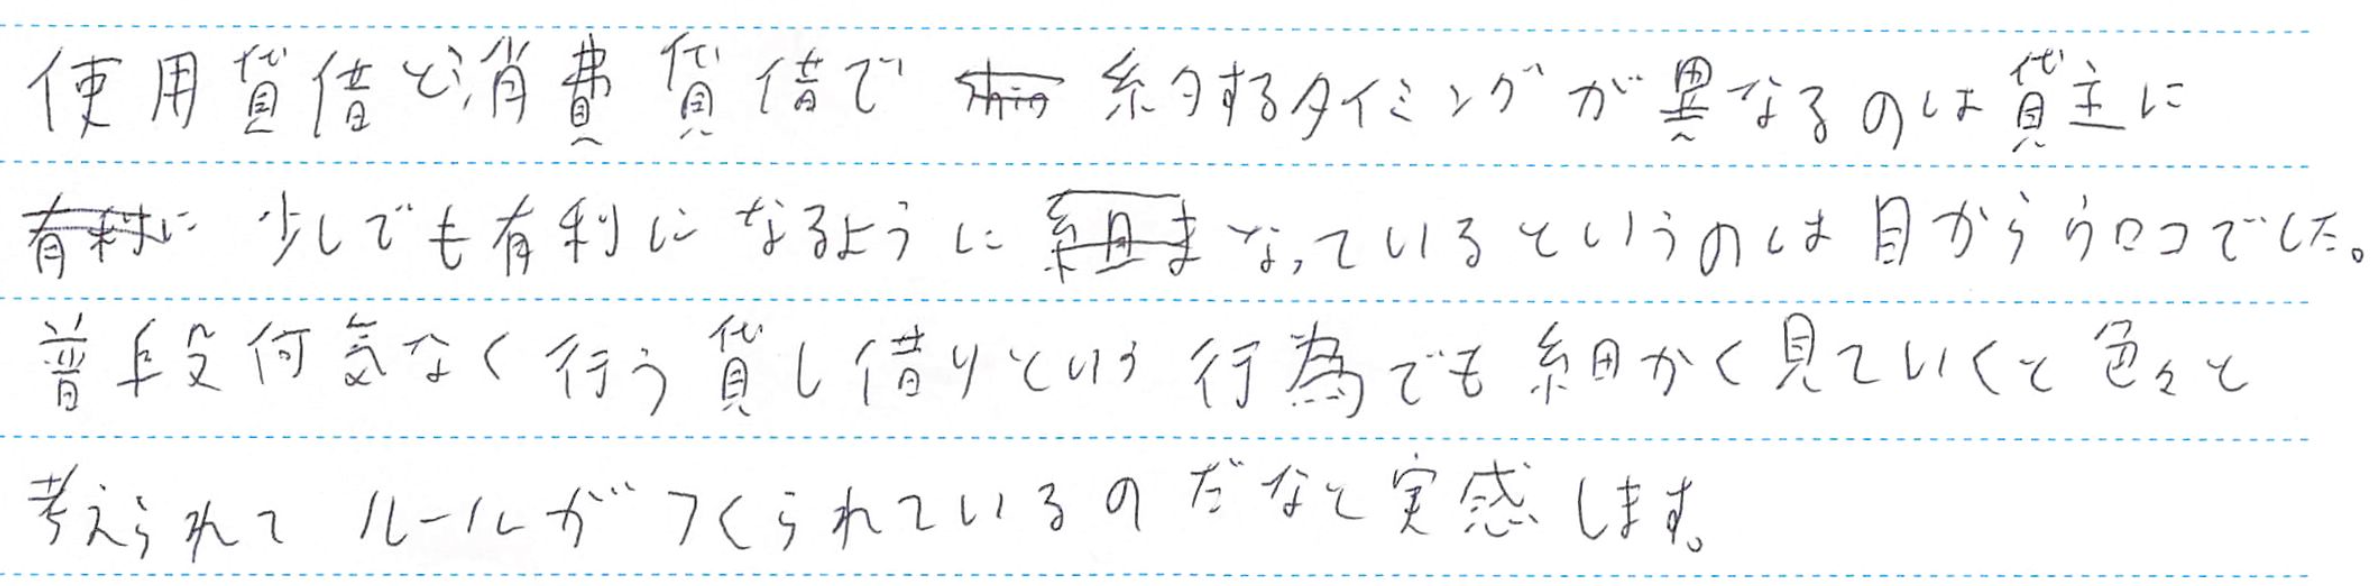 使用貸借と消費貸借で 約するタイミングが異なるのは貸主に
有利に 少しでも有利になるように 組ま なっているというのは目からウロコでした。
普段何気なく行う貸し借りという行為でも細かく見ていくと色々と
考えられてルールがつくられているのだなと実感します。